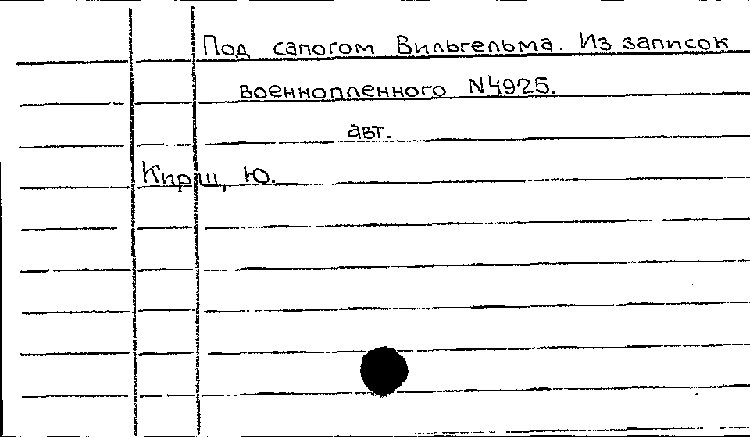 Под сапогом Вильгельма. Из записок
военнопленного N4925.
авт.
Кирш, Ю.